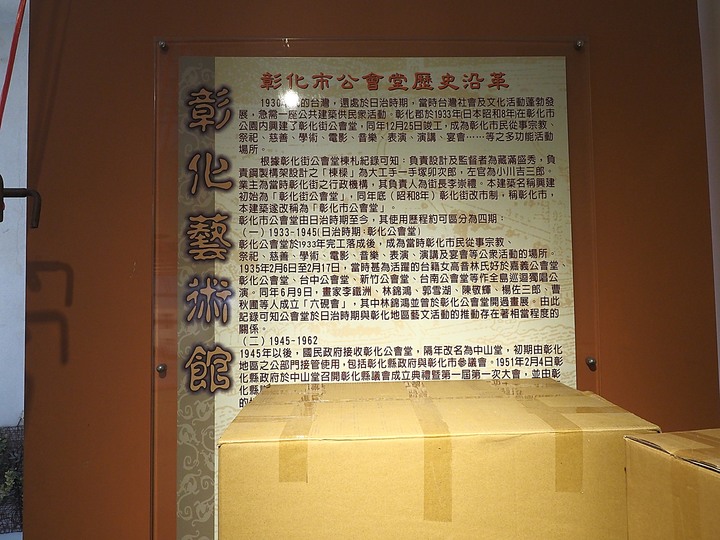 彰化藝術館
彰化市公會堂歷史沿革
1930 的台灣，還處於日治時期，當時台灣社會及文化活動蓬勃發
展，急需一座公共建築供民眾活動。彰化郡於1933年日本昭和8年在彰化市
公園內興建了彰化街公會堂，同年12月25日竣工，成為彰化市民從事宗教、
祭祀、慈善、學術、電影、音樂、表演、演講、宴會……等之多功能活動
場所。
根據彰化街公會堂棟札紀錄可知：負責設計及監督者為藏滿盛秀，負
責鋼製構架設計之「棟樑」為大工手一手塚卯次郎，左官為小川吉三郎。
業主為當時彰化街之行政機構，其負責人為街長李崇禮。本建築名稱興建
初始為「彰化街公會堂」，同年底（昭和8年）彰化街改市制，稱彰化市，
本建築遂改稱為「彰化市公會堂」。
彰化市公會堂由日治時期至今，其使用歷程約可區分為四期：
(一)1933-1945(日治時期:彰化公會堂)
彰化公會堂於1933年完工落成後，成為當時彰化市民從事宗教、
祭祀、慈善、學術、電影、音樂、表演、演講及宴會等公眾活動的場所。
1935年2月6日至2月17日，當時甚為活躍的台籍女高音林氏好於嘉義公會堂、
彰化公會堂、台中公會堂、新竹公會堂、台南公會堂等作全島巡迴獨唱公
演。同年6月9日，畫家李鐵洲、林錦鴻、郭雪湖、陳敬輝、楊佐三郎、曹
秋圃等人成立「六硯會」，其中林錦鴻並曾於彰化公會堂開過畫展。由此
記錄可知公會堂於日治時期與彰化地區藝文活動的推動存在著相當程度的
關係。
(二)1945-1962
1945年以後，國民政府接收彰化公會堂，隔年改名為中山堂，初期由彰化
地區之公部門接管使用，包括彰化縣政府與彰化市參議會。1951年2月4日彰
化縣政府於中山堂召開彰化縣議會成立典禮暨第一屆第一次大會，並由彰
化縣
的